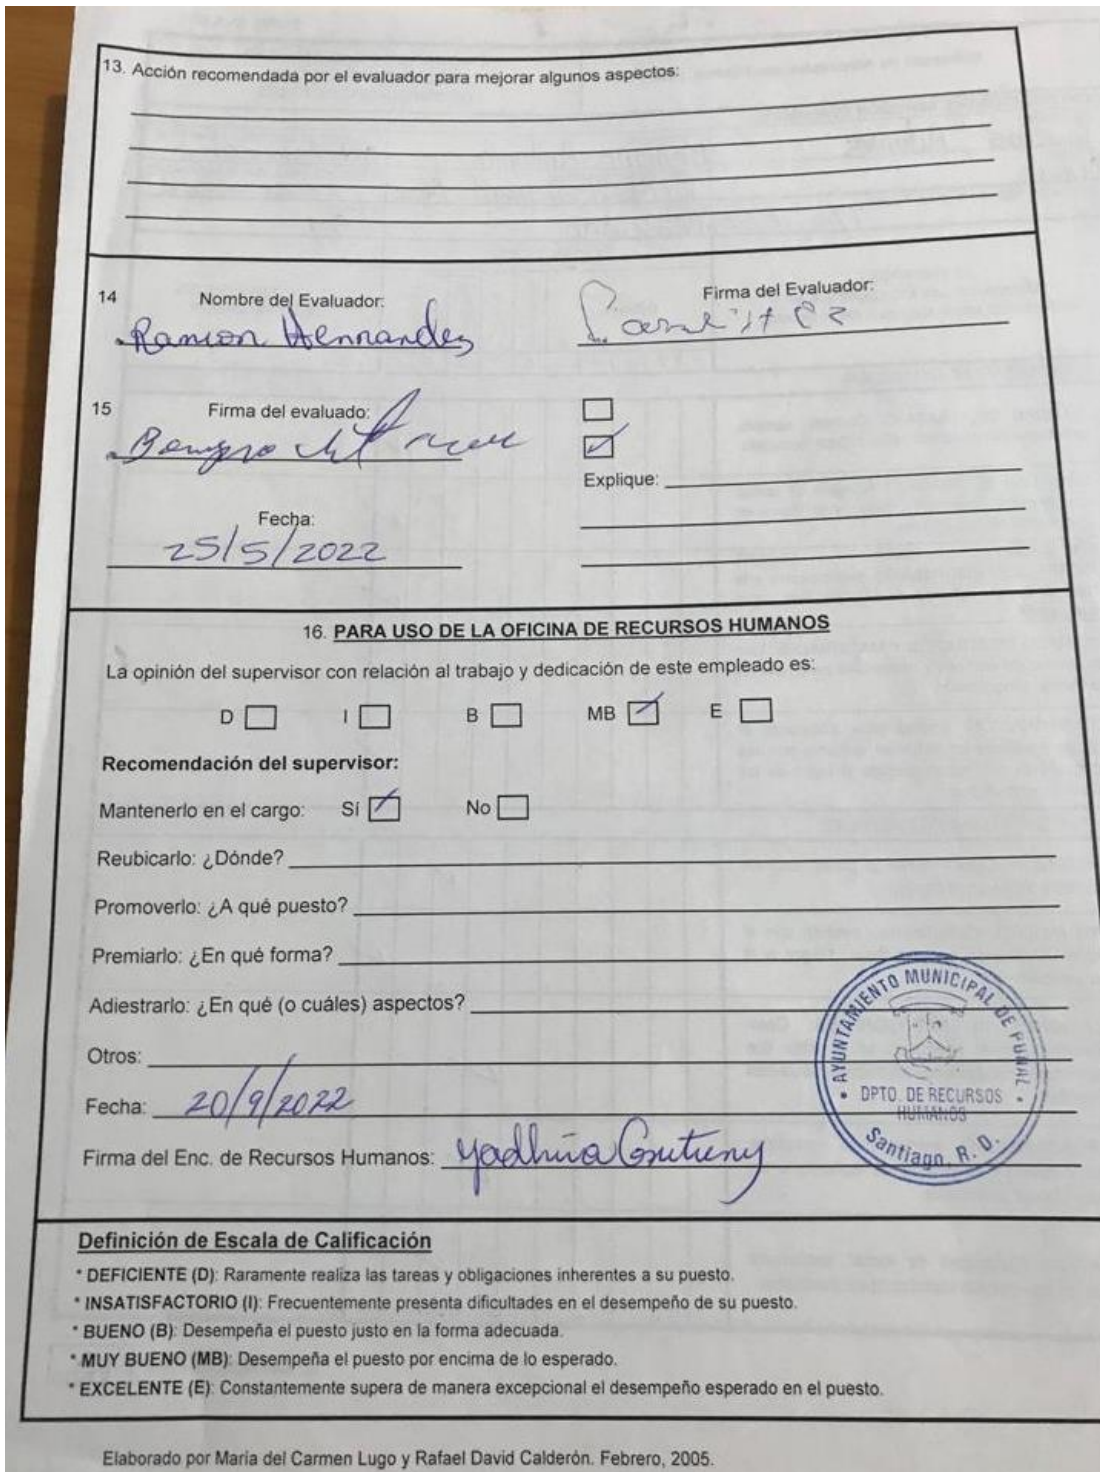 13. Acción recomendada por el evaluador para mejorar algunos aspectos:
14 Nombre del Evaluador: Firma del Evaluador:
Ramon Hennandez
15 Firma del evaluado:
Explique:
Fecha:
25/5/2022
16. PARA USO DE LA OFICINA DE RECURSOS HUMANOS
La opinión del supervisor con relación al trabajo y dedicación de este empleado es:
D I B MB E
Recomendación del supervisor:
Mantenerlo en el cargo: Sí No
Reubicarlo: ¿Dónde?
Promoverlo: ¿A qué puesto?
Premiarlo: ¿En qué forma?
Adiestrarlo: ¿En qué (o cuáles) aspectos?
Otros:
Fecha: 20/9/2022
AYUNTAMIENTO MUNICIPAL DE PUÑAL
DPTO. DE RECURSOS
HUMANOS
Santiago, R. D.
Firma del Enc. de Recursos Humanos:
Definición de Escala de Calificación
* DEFICIENTE (D): Raramente realiza las tareas y obligaciones inherentes a su puesto.
* INSATISFACTORIO (I): Frecuentemente presenta dificultades en el desempeño de su puesto.
* BUENO (B): Desempeña el puesto justo en la forma adecuada.
* MUY BUENO (MB): Desempeña el puesto por encima de lo esperado.
* EXCELENTE (E): Constantemente supera de manera excepcional el desempeño esperado en el puesto.
Elaborado por Maria del Carmen Lugo y Rafael David Calderón. Febrero, 2005.